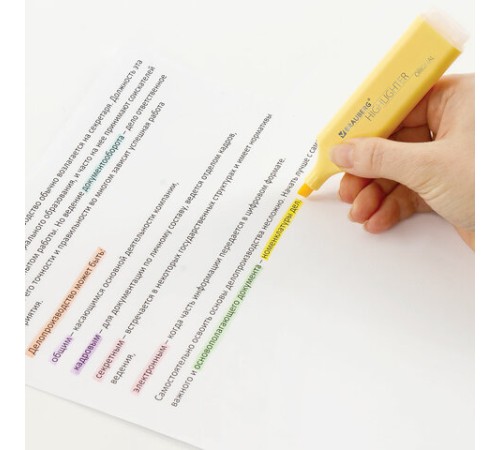 одство обычно возлагается на секретаря. Должность эта
ального образования, и часто на нее принимают соискателей
ытом работы. Но ведение документооборота – дело ответственное
его точности и правильности во многом зависит успешная работа
риятия.
Делопроизводство может быть:
общим – касающимся основной деятельности компании,
кадровым – для документации по личному составу, ведется отделом кадров,
секретным – встречается в некоторых государственных структурах и имеет нормативы
ведения,
электронным – когда часть информации передается в цифровом формате.
Самостоятельно освоить основы делопроизводства несложно. Начать лучше с сам
важного и основополагающего документа – номенклатуры дел
BRAUBERG
HIGHLIGHTER
ORIGINAL